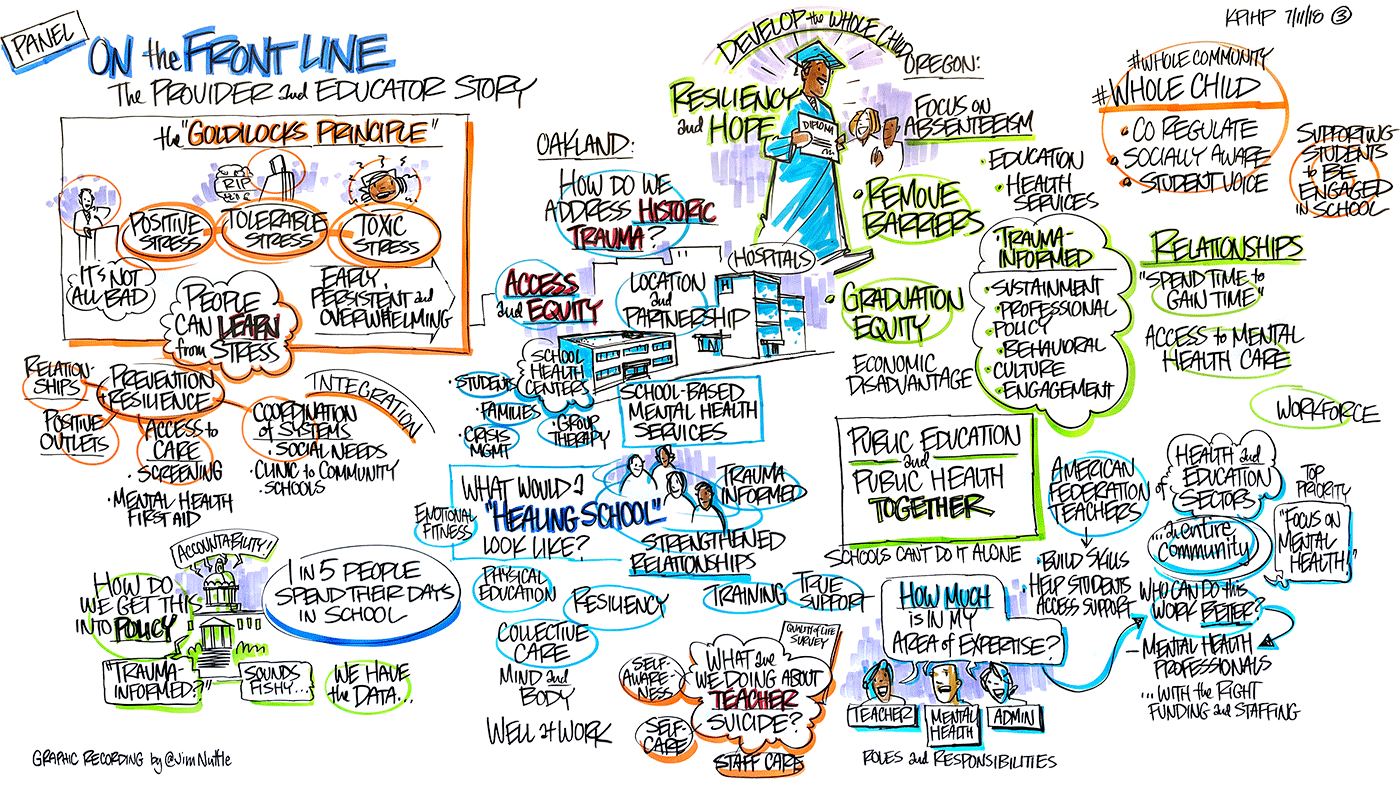 PANEL
ON the FRONT LINE
The PROVIDER and EDUCATOR STORY
the "GOLDILOCKS PRINCIPLE"
RIP
POSITIVE
STRESS
TOLERABLE
STRESS
TOXIC
STRESS
IT'S NOT
ALL BAD
PEOPLE
CAN LEARN
from STRESS
EARLY,
PERSISTENT and
OVERWHELMING
RELATION-
SHIPS
PREVENTION
+ RESILIENCE
POSITIVE
OUTLETS
ACCESS to
CARE
• SCREENING
• MENTAL HEALTH
FIRST AID
INTEGRATION
COORDINATION
of SYSTEMS
• SOCIAL NEEDS
• CLINIC to COMMUNITY
• SCHOOLS
ACCOUNTABILITY!
HOW DO
WE GET THIS
INTO POLICY
"TRAUMA-
INFORMED?"
SOUNDS
FISHY...
WE HAVE
the DATA...
1 IN 5 PEOPLE
SPEND THEIR DAYS
IN SCHOOL
GRAPHIC RECORDING by @Jim Nuttle
OAKLAND:
HOW DO WE
ADDRESS HISTORIC
TRAUMA?
ACCESS
and EQUITY
LOCATION
and
PARTNERSHIP
HOSPITALS
H
SCHOOL
HEALTH
CENTERS
• STUDENTS
• FAMILIES
• CRISIS
MGMT
• GROUP
THERAPY
SCHOOL-BASED
MENTAL HEALTH
SERVICES
WHAT WOULD a
"HEALING SCHOOL"
LOOK LIKE?
TRAUMA
INFORMED
EMOTIONAL
FITNESS
STRENGTHENED
RELATIONSHIPS
PHYSICAL
EDUCATION
RESILIENCY
TRAINING
TRUE
SUPPORT
COLLECTIVE
CARE
MIND and
BODY
WELL at WORK
QUALITY of LIFE
SURVEY
SELF-
AWARE-
NESS
WHAT are
WE DOING ABOUT
TEACHER
SUICIDE?
SELF-
CARE
STAFF CARE
DEVELOP the WHOLE CHILD
RESILIENCY
and HOPE
DIPLOMA
OREGON:
FOCUS ON
ABSENTEEISM
• REMOVE
BARRIERS
• EDUCATION
• HEALTH
SERVICES
• GRADUATION
EQUITY
ECONOMIC
DISADVANTAGE
• TRAUMA-
INFORMED
• SUSTAINMENT
• PROFESSIONAL
• POLICY
• BEHAVIORAL
• CULTURE
• ENGAGEMENT
PUBLIC EDUCATION
and
PUBLIC HEALTH
TOGETHER
SCHOOLS CAN'T DO IT ALONE
HOW MUCH
IS IN MY
AREA of EXPERTISE?
TEACHER
MENTAL
HEALTH
ADMIN
ROLES and RESPONSIBILITIES
KPIHP 7/11/18 ③
#WHOLE COMMUNITY
#WHOLE CHILD
• CO REGULATE
• SOCIALLY AWARE
• STUDENT VOICE
SUPPORTING
STUDENTS
to BE
ENGAGED
IN SCHOOL
RELATIONSHIPS
"SPEND TIME to
GAIN TIME"
ACCESS to MENTAL
HEALTH CARE
WORKFORCE
AMERICAN
FEDERATION of
TEACHERS
• BUILD SKILLS
HELP STUDENTS
ACCESS SUPPORT
HEALTH and
EDUCATION
SECTORS
...an entire
community
TOP
PRIORITY
"FOCUS ON
MENTAL
HEALTH!"
WHO CAN DO this
WORK BETTER?
– MENTAL HEALTH
PROFESSIONALS
...WITH the RIGHT
FUNDING and STAFFING